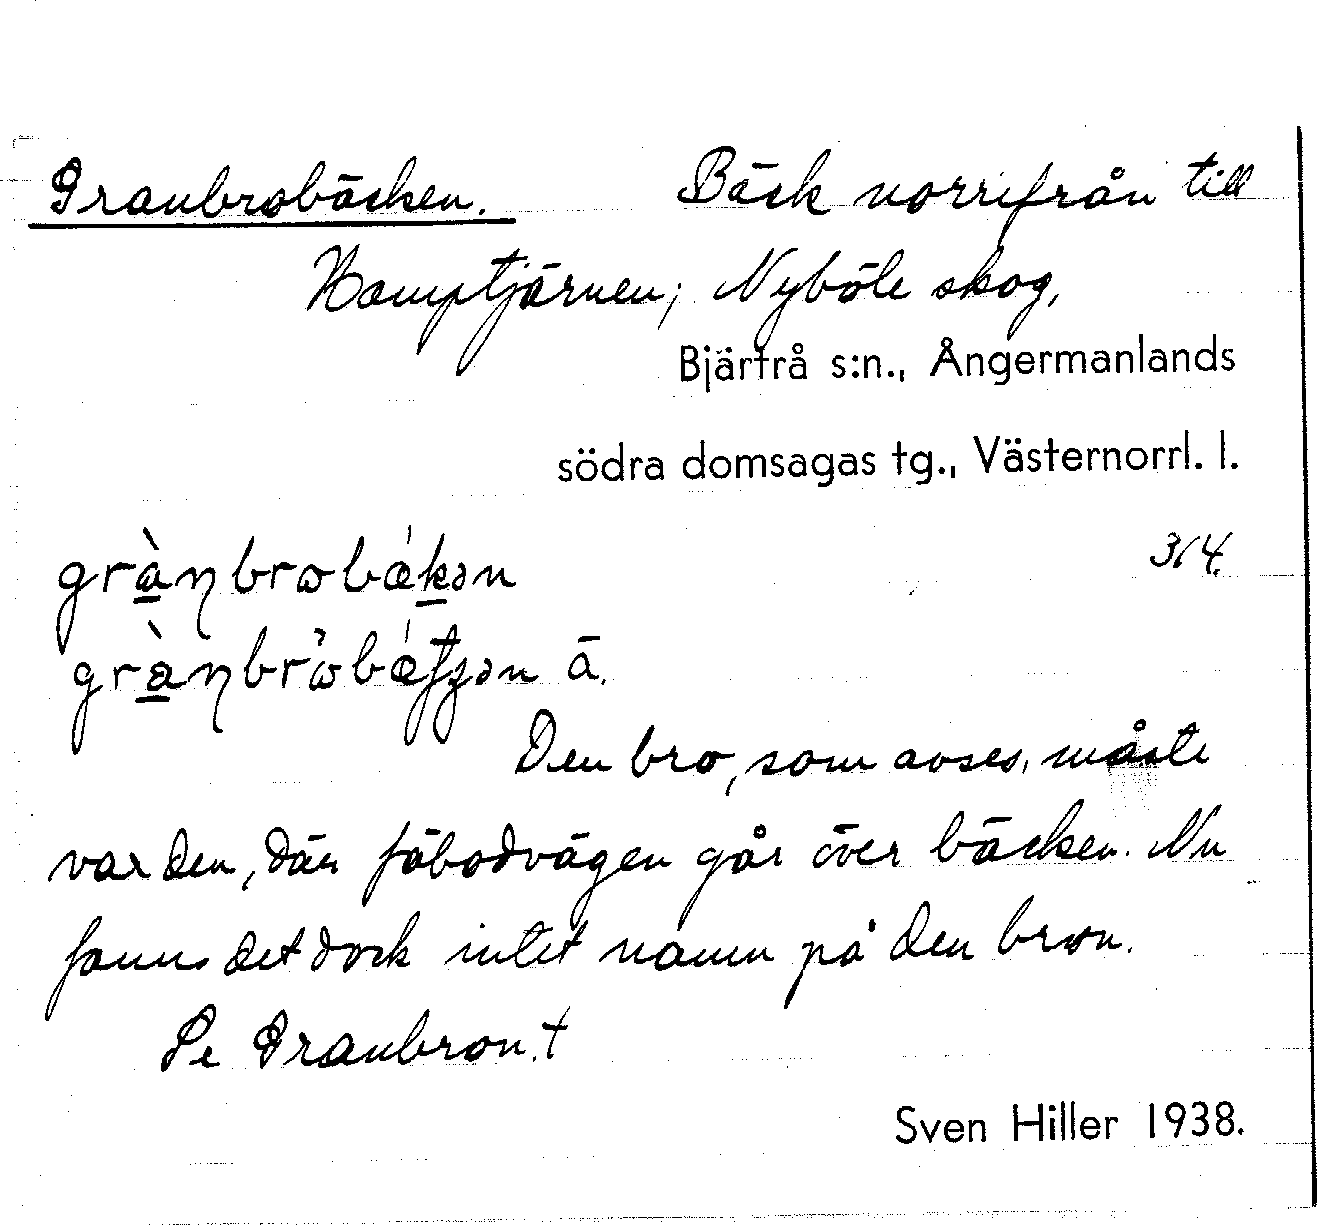 Granbrobäcken. Bäck norrifrån till
Kamptjärnen; Nyböle skog,
Bjärtrå s:n., Ångermanlands
södra domsagas tg., Västernorrl. l.
314.
Den bro, som avses, måste
var den, där fäbodvägen går över bäcken. Nu
fanns det dock intet namn på den bron.
Se Granbron.†
Sven Hiller 1938.